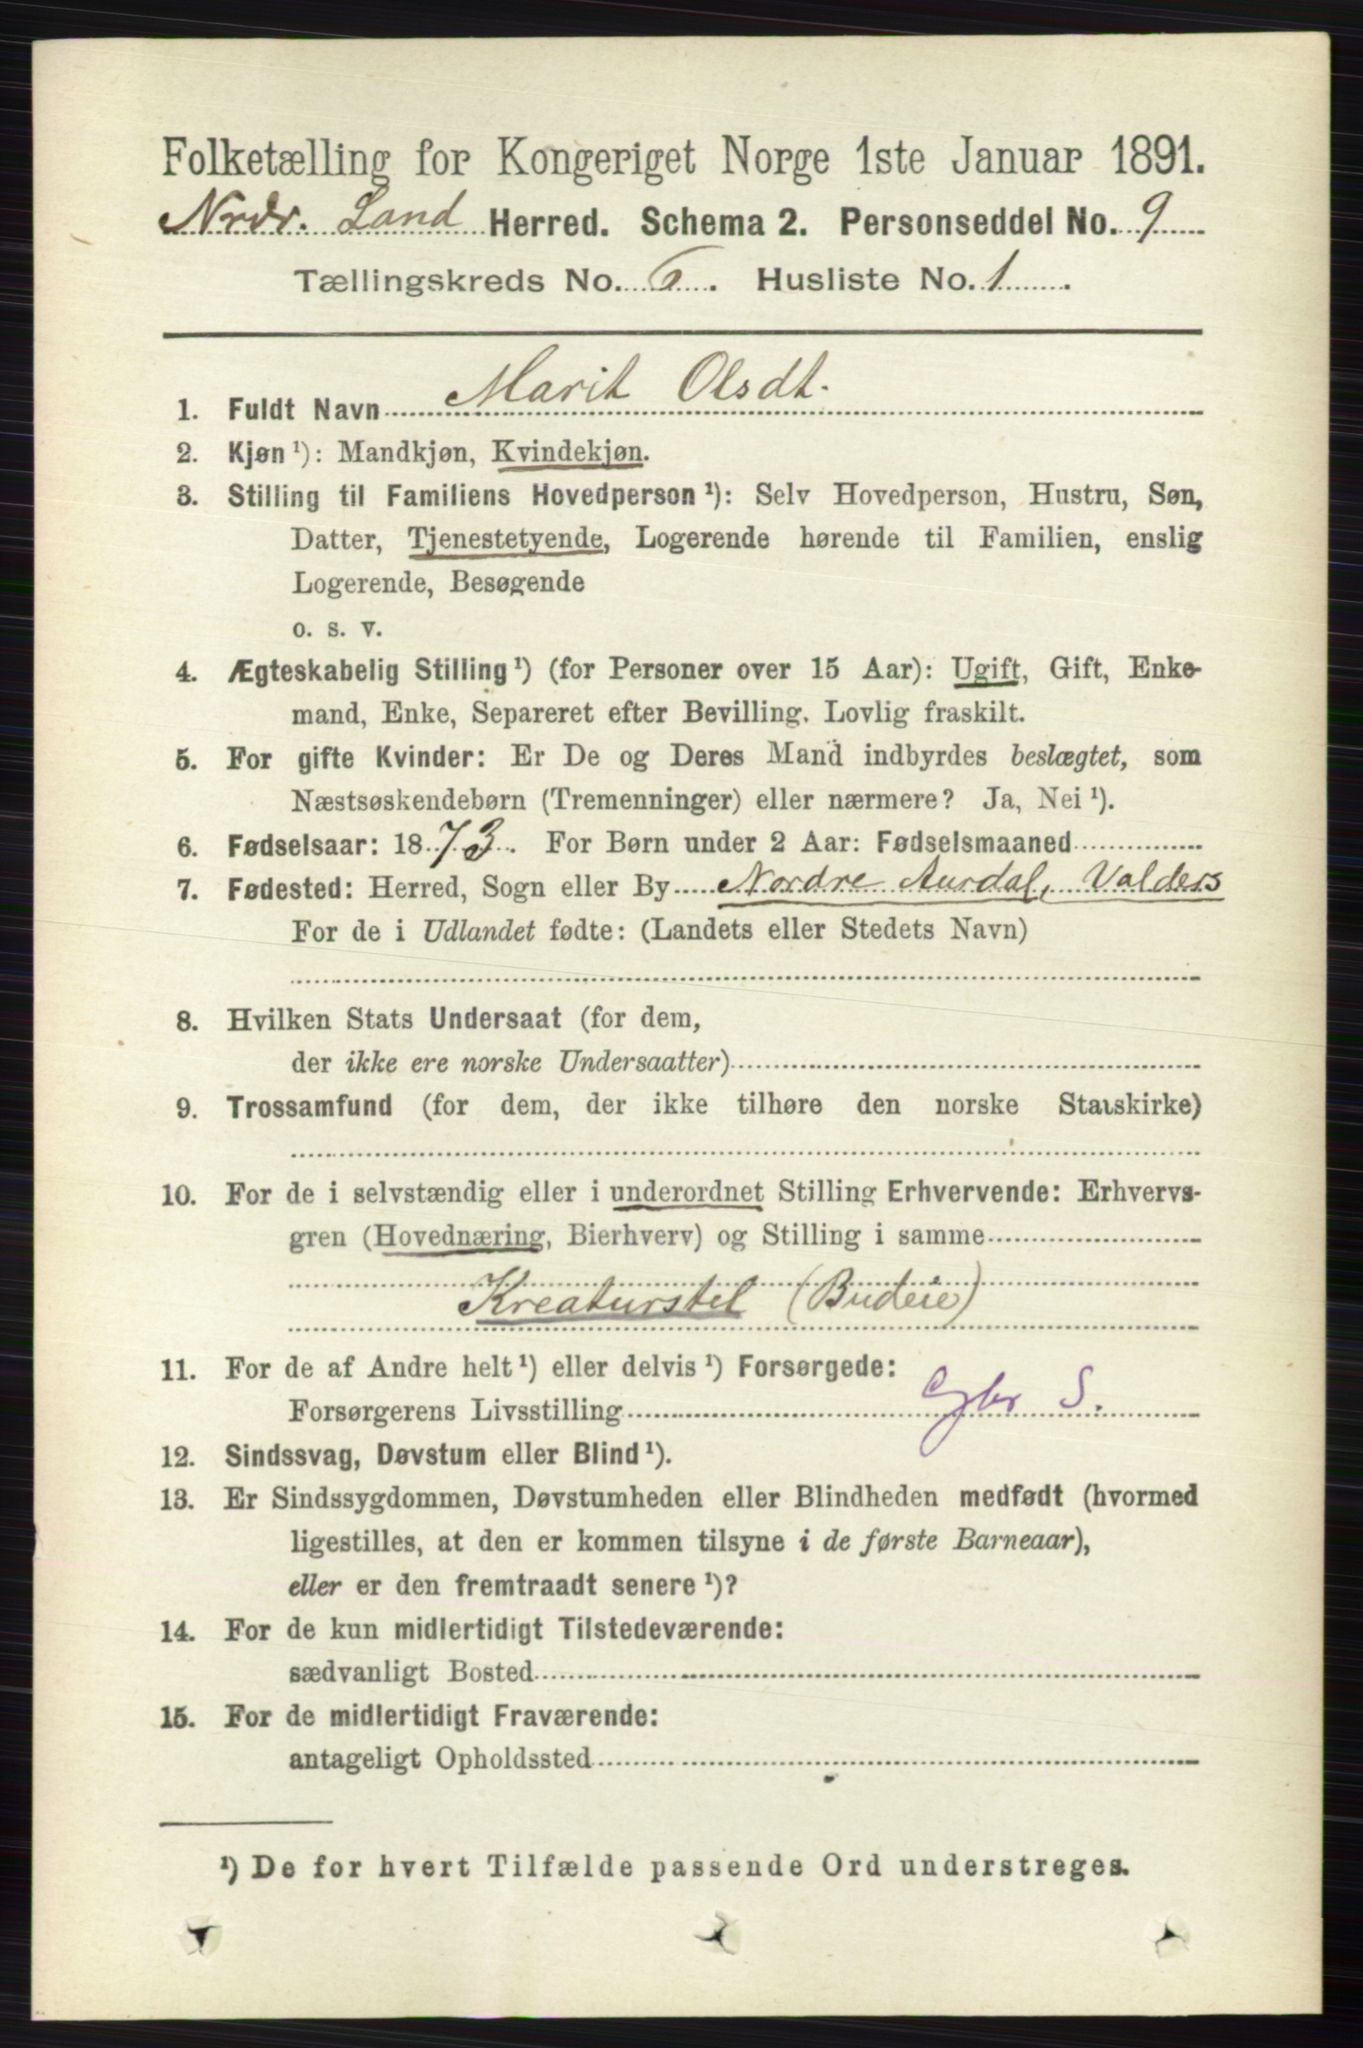 Folketælling for Kongeriget Norge 1ste Januar 1891.
Nrdr. Land Herred. Schema 2. Personseddel No. 9
Tællingskreds No. 6. Husliste No. 1.
1. Fuldt Navn Marit Olsdt.
2. Kjøn ¹): Mandkjøn, Kvindekjøn.
3. Stilling til Familiens Hovedperson ¹): Selv Hovedperson, Hustru, Søn,
Datter, Tjenestetyende, Logerende hørende til Familien, enslig
Logerende, Besøgende
o. s. v.
4. Ægteskabelig Stilling ¹) (for Personer over 15 Aar): Ugift, Gift, Enke-
mand, Enke, Separeret efter Bevilling. Lovlig fraskilt.
5. For gifte Kvinder: Er De og Deres Mand indbyrdes beslægtet, som
Næstsøskendebørn (Tremenninger) eller nærmere? Ja, Nei ¹).
6. Fødselsaar: 1873. For Børn under 2 Aar: Fødselsmaaned
7. Fødested: Herred, Sogn eller By Nordre Aurdal, Valders
For de i Udlandet fødte: (Landets eller Stedets Navn)
8. Hvilken Stats Undersaat (for dem,
der ikke ere norske Undersaatter)
9. Trossamfund (for dem, der ikke tilhøre den norske Statskirke)
10. For de i selvstændig eller i underordnet Stilling Erhvervende: Erhvervs-
gren (Hovednæring, Bierhverv) og Stilling i samme
Kreaturstel (Budeie)
11. For de af Andre helt ¹) eller delvis ¹) Forsørgede:
Forsørgerens Livsstilling Gbr S.
12. Sindssvag, Døvstum eller Blind ¹).
13. Er Sindssygdommen, Døvstumheden eller Blindheden medfødt (hvormed
ligestilles, at den er kommen tilsyne i de første Barneaar),
eller er den fremtraadt senere ¹)?
14. For de kun midlertidigt Tilstedeværende:
sædvanligt Bosted
15. For de midlertidigt Fraværende:
antageligt Opholdssted
¹) De for hvert Tilfælde passende Ord understreges.